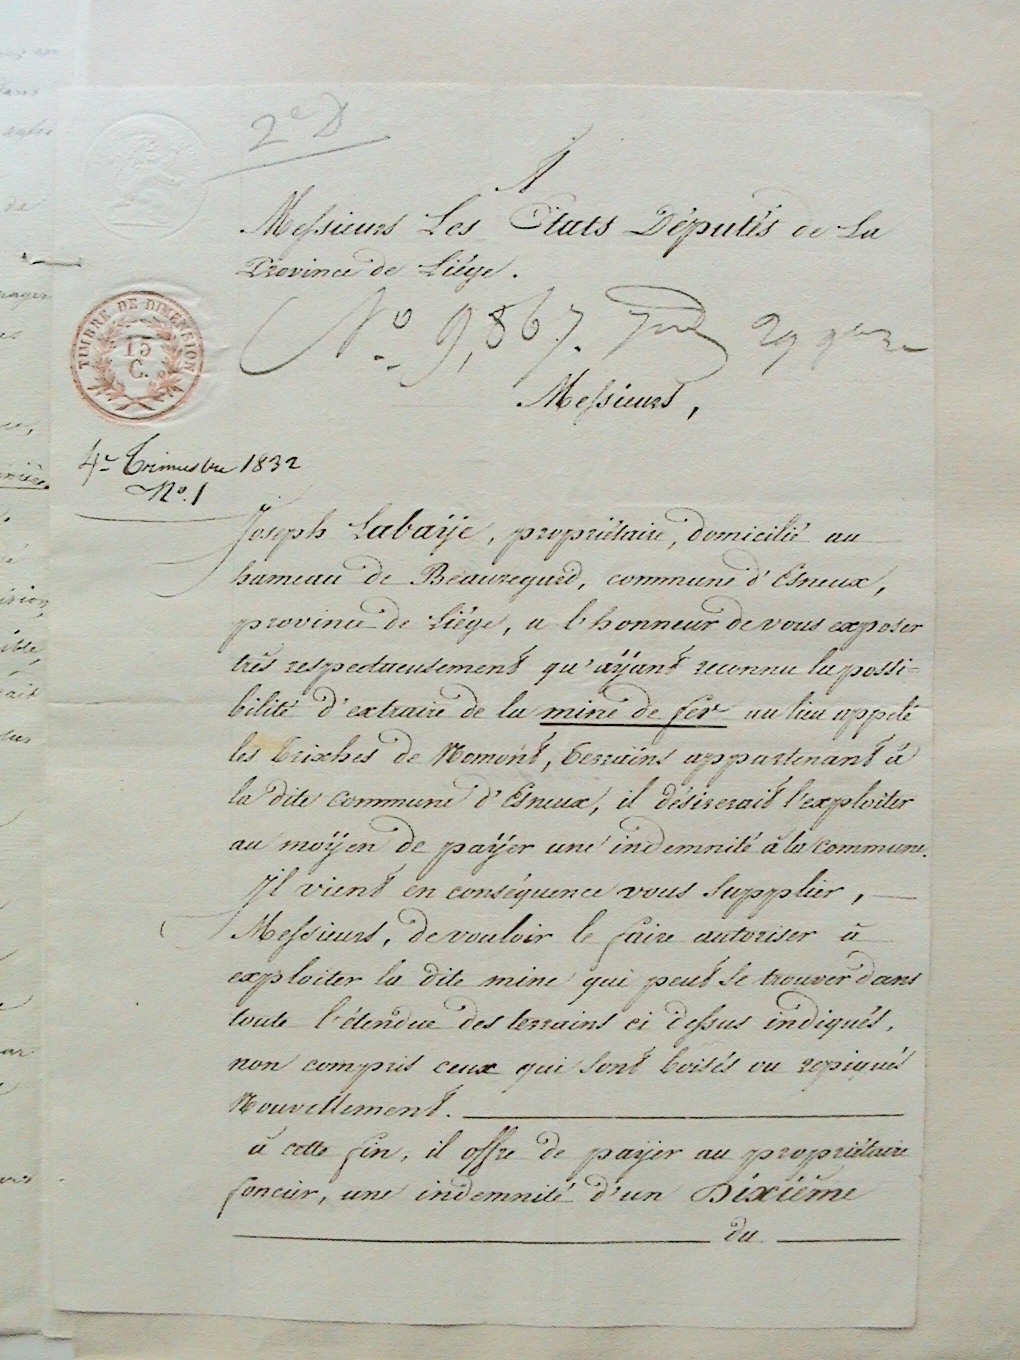 2e D
A
Messieurs Les États Députés de La
Province de Liége.
No. 9,867. 29 9bre
Messieurs,
TIMBRE DE DIMENSION
15
C.
4e Trimestre 1832
No. 1
Joseph Labaÿe, propriétaire, domicilié au
hameau de Beauregard, commune d'Esneux,
province de Liége, a l'honneur de vous exposer
très respectueusement qu'aÿant reconnu la possi=
bilité d'extraire de la mine de fer au lieu appelé
les Trixhes de Nomont, terrains appartenant à
la dite commune d'Esneux, il désirerait l'exploiter
au moÿen de paÿer une indemnité à la commune.
Il vient en conséquence vous supplier,
Messieurs, de vouloir le faire autoriser à
exploiter la dite mine qui peut se trouver dans
toute l'étendue des terrains ci dessus indiqués,
non compris ceux qui sont boisés ou repiqués
Nouvellement.
à cette fin, il offre de paÿer au propriétaire
foncier, une indemnité d'un Dixième
du